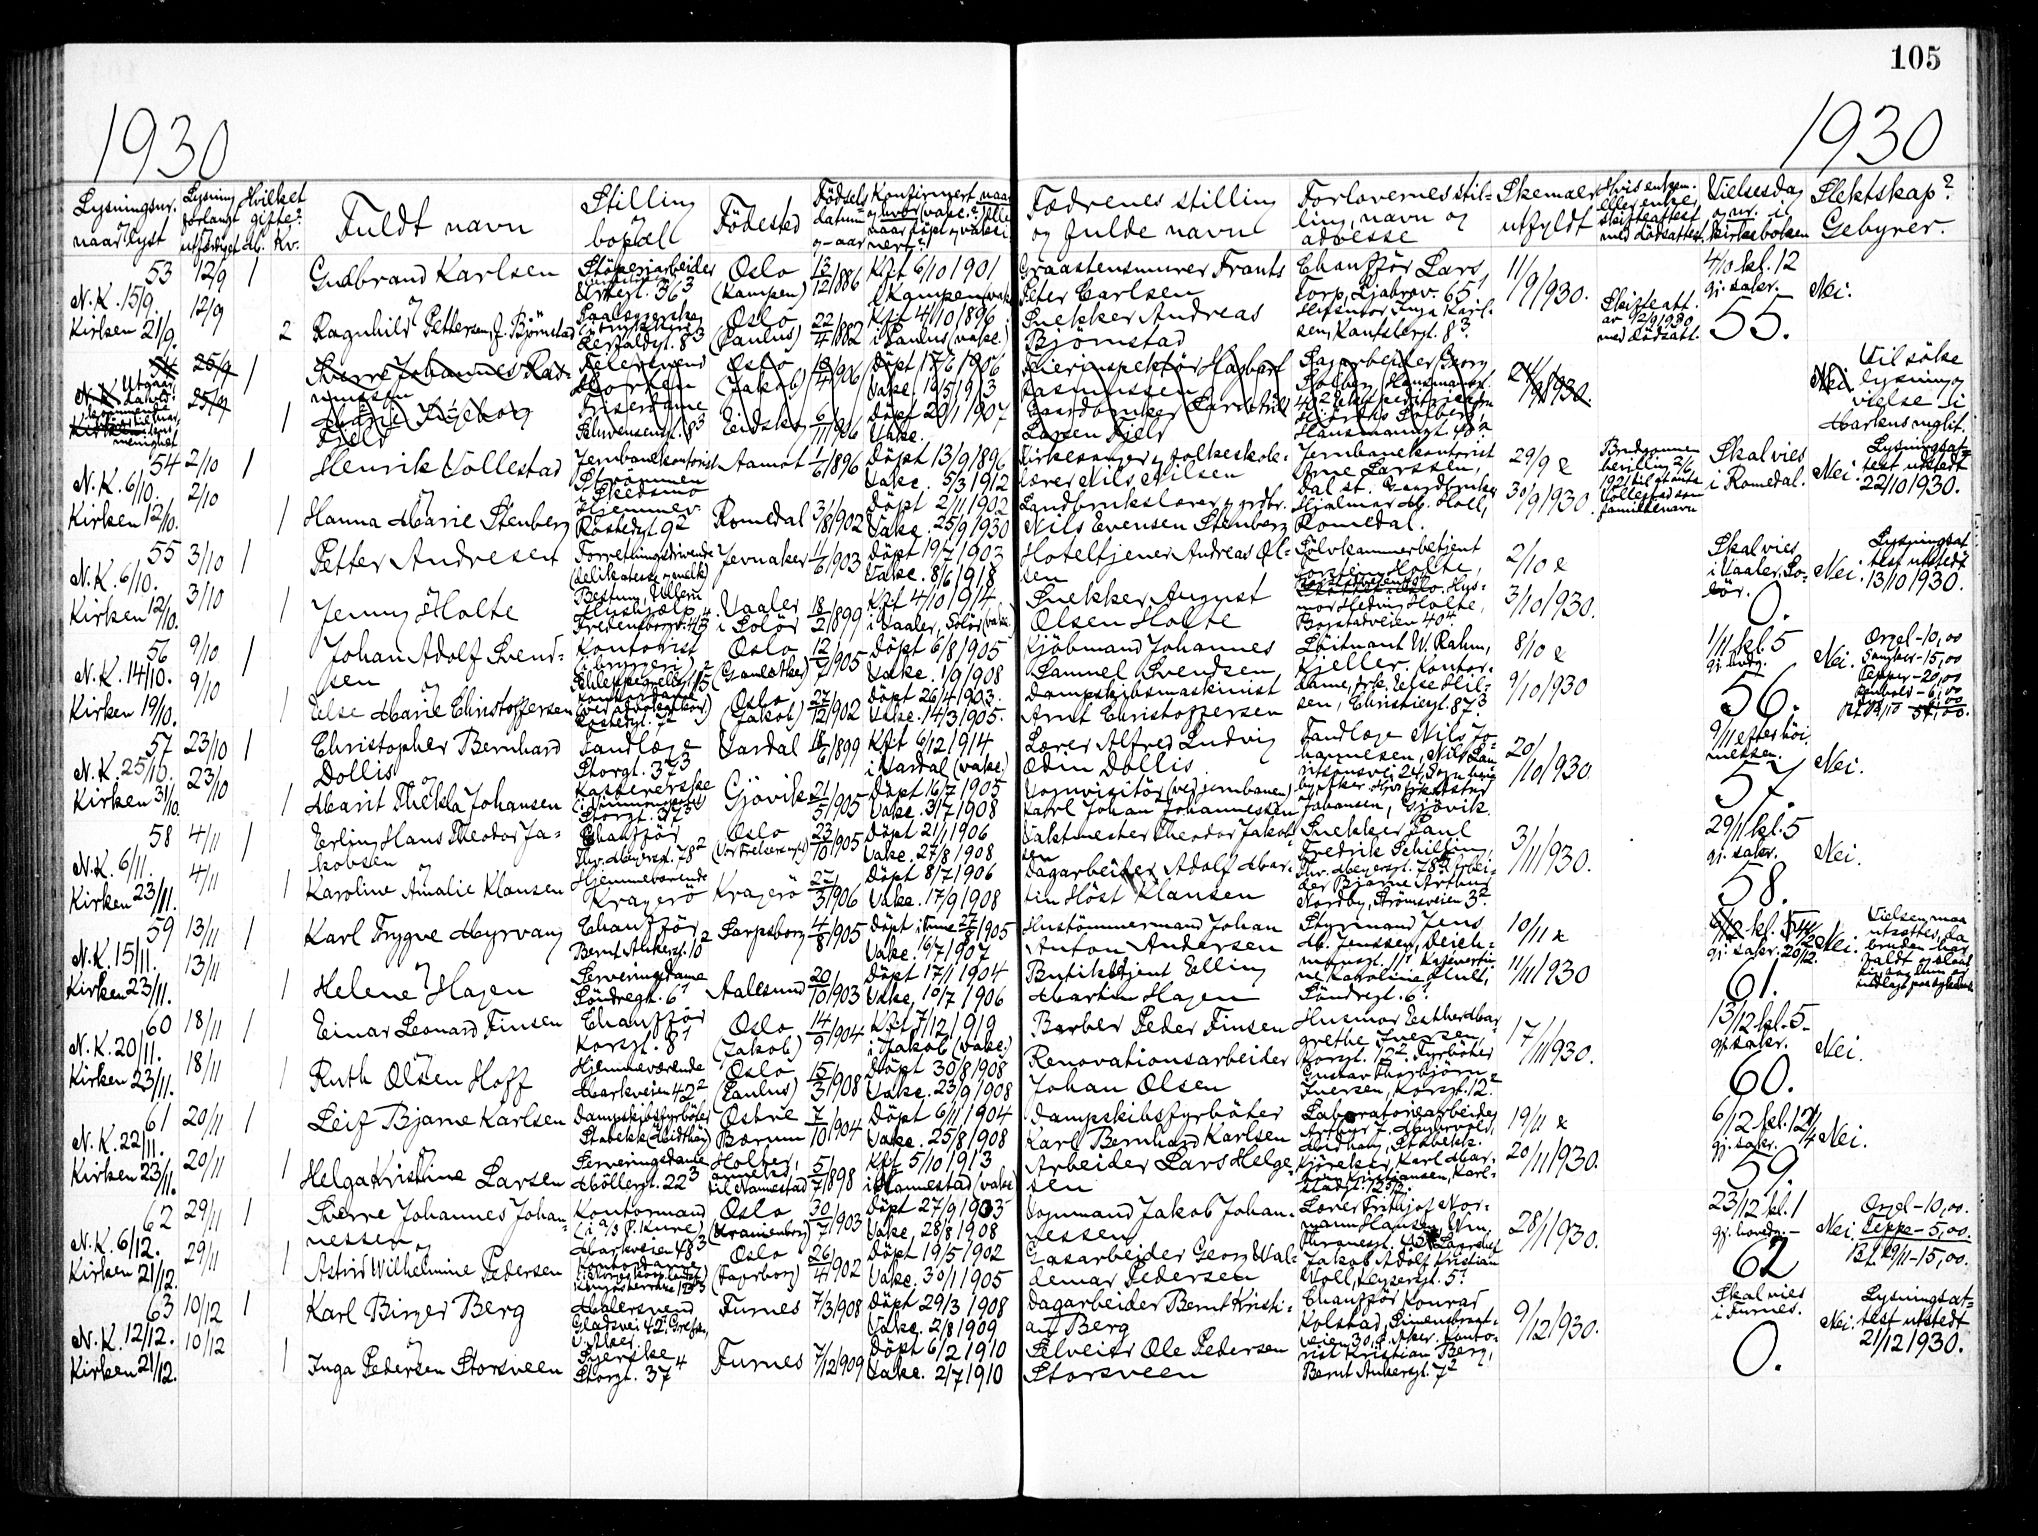 105
1930
1930
Lysningsnr. naar lyst
Lysning forlangt utfærdiget
Hvilket gifte? M. Kv.
Fuldt navn
Stilling bopæl
Födested
Födsels datum og aar
Konfirmert naar og hvor (vake.?)
Fædrenes stilling og fulde navn
Forlovernes stilling, navn og adresse
Skemaer utfyldt
Hvis enkem. eller enke, skifteattest med dödsattest.
Vielsesdag og nr. i kirkeboken
Slektskap? Gebyrer.
53 12/9 1 Gudbrand Karlsen
Urtegt. 36³ Oslo (Kampen) 13/12 1886 Kft 6/10 1901 i Kampen (vake)
Graastensmurer Frants Peter Carlsen
Chaufför Lars Torp, Ljabrov. 65
11/9 1930.
4/10 kl. 12 gj. sakr. Nei.
N.K. 15/9. 12/9
Kirken 21/9. 2 Ragnhild Pettersen, f. Björnstad
Oslo (Paulus) 22/4 1882 Kft 4/10 1896 i Paulus (vake.)
Snekker Andreas Björnstad
Skifteatt. av 12/9 1930 med dödsatt.
55.
25/9 1 Sverre Johannes Rasmussen
Oslo (Jakob) Döpt 17/6 1906 Vake. 16/5 1913
Nei. Til söke lysning og vielse i Markus mglit.
N.K.
25/9
1 Marie Ingeborg Fjeld
Eidskog 6/11 1906 Döpt 20/1 1907 Vake.
Gaardbruker
Larsen Fjeld
54 2/10 1 Henrik Vollestad
Jernbanekontorist Strömmen Skedsmo Aamot 1/6 1896 Döpt 13/9 1896 Vake. 5/3 1912
Kirkesanger og folkeskolelærer Nils Nilsen
Jernbanekontorist Arne Larssen,
29/9 &
Skal vies i Romedal. Nei. Lysningsattest utstedt 22/10 1930.
N.K. 6/10. 2/10
Kirken 12/10. 1 Hanna Marie Stenberg
Hjemmev. Rostedgt 9² Romedal 3/8 1902 Döpt 2/11 1902 Vake. 25/9 1930
Landbrukslærer og grdbr. Nils Evensen Stenberg
Hjalmar M. Holl, Romedal.
30/9 1930.
55 3/10 1 Petter Andresen
Forretningsdrivende (delikatesse og melk) Bestum, Ullern Jevnaker 1/6 1903 Döpt 19/7 1903 Vake. 8/6 1918
Hoteltjener Andreas Olsen
Sölvkammerbetjent Torstein Holte,
2/10 &
Skal vies i Vaaler, Solör. Nei. Lysningsattest utstedt 13/10 1930.
N.K. 6/10. 3/10
Kirken 12/10. 1 Jenny Holte
Hushjælp Vaaler i Solör 18/2 1899 Kft 4/10 1914 i Vaaler, Solör (vake.)
Snekker August Olsen Holte
Husmor Hedvig Holte, Bogstadveien 40⁴.
3/10 1930.
0.
56 9/10 1 Johan Adolf Svendsen
Kontorist Oslo (Gamle Aker) 12/7 1905 Döpt 6/8 1905 Vake. 1/9 1908
Kjöbmand Johannes Samuel Svendsen
Löitnant W. Rahm, Kjeller.
8/10 &
1/11 kl. 5 Nei. Orgel-10,00 Sanger-15,00
N.K. 14/10. 9/10
Kirken 19/10. 1 Else Marie Christoffersen
Rostedgt. 7² Oslo (Jakob) 27/12 1902 Döpt 26/4 1903. Vake. 14/3 1905.
Dampskibsmaskinist Arnt Christoffersen
Kontordame, frk. Else Hilsen, Christiesgt. 87³
9/10 1930
56.
57 23/10 1 Christopher Bernhard Dollis
Tandlæge Storgt. 37³ Vardal 18/6 1899 Kft 6/12 1914 i Vardal (vake.)
Lærer Alfred Ludvig Odin Dollis
Tandlæge Nils Johannesen,
20/10 1930.
9/11 efter höimessen. Nei.
N.K. 25/10. 23/10
Kirken 31/10. 1 Marit Thekla Johansen
Kassererske Storgt. 37³ Gjövik 21/5 1905 Döpt 16/7 1905 Vake. 3/7 1908
Vognvisitör (ved jernbanen) Karl Johan Johannessen
Johansen, Gjövik.
57
58 4/11 1 Erling Hans Theodor Jakobsen
Chaufför Thv. Meyersgt. 78² Oslo 23/10 1905 Döpt 21/1 1906 Vake. 27/8 1908
Vaktmester Theodor Jakobsen
Snekker Paul Fredrik Schilling, Thv. Meyersgt. 78²
3/11 1930.
29/11 kl. 5 gj. sakr. Nei.
N.K. 6/11. 4/11
Kirken 23/11. 1 Karoline Amalie Klausen
Hjemmeværende Kragerö Kragerö 27/3 1906 Döpt 8/7 1906 Vake. 17/9 1908
Dagarbeider Adolf Martin Höst Klausen
Arbeider Bjarne Arthur Nordby, Strömsveien 3².
58.
59 13/11 1 Karl Trygve Myrvang
Chaufför Bernt Ankersgt. 10² Sarpsborg 4/8 1905 Döpt i Tune 27/8 1905 Vake. 16/7 1907
Hustömmermand Johan Anton Andersen
Styrmand Jens M. Jenssen,
10/11 &
gj. sakr. 20/12. Nei. Vielsen maa utsættes, da bruden har
N.K. 15/11. 13/11
Kirken 23/11. 1 Helene Hagen
Serveringsdame Söndregt. 6¹ Aalesund 20/10 1903 Döpt 17/1 1904 Vake, 10/7 1906
Butikbetjent Elling Martin Hagen
Söndregt. 6¹.
11/11 1930
61.
60 18/11 1 Einar Leonard Finsen
Chaufför Korsgt. 8¹ Oslo (Jakob.) 14/9 1904 Kft 7/12 1919 i Jakob (vake.)
Barber Peder Finsen
Husmor Esther Margrethe Iversen, Korsgt. 12².
17/11 1930.
13/12 kl. 5- gj. sakr. Nei.
N.K. 20/11. 18/11
Kirken 23/11. 1 Ruth Olsen Hoff
Hjemmeværende Markveien 42² Oslo (Paulus) 15/3 1908 Döpt 30/8 1908 Vake. 23/9 1908
Renovationsarbeider Johan Olsen
Fyrböter Gustav Thorbjörn Iversen, Korsgt. 12.²
60.
61 20/11 1 Leif Bjarne Karlsen
Dampskibsfyrböter Stabekk Östre Bærum 7/10 1904 Döpt 6/11 1904 Vake. 25/8 1908
Dampskibsfyrböter Karl Bernhard Karlsen
Laboratoriearbeider Arthur F. Myrvold,
19/11 &
6/12 kl. 12 1/4 gj. sakr. Nei.
N.K. 22/11. 20/11
Kirken 23/11. 1 Helga Kristine Larsen
Serveringsdame Möllergt. 22³ Holter, anneks til Nannestad 5/7 1898 Kft 5/10 1913 i Nannestad (vake)
Arbeider Lars Helgesen
Kjörekar, Karl Mar-
20/11 1930.
59.
62 29/11 1 Sverre Johannes Johannessen
Kontormand Markveien 48³ Oslo (Uranienborg) 30/7 1903 Döpt 27/9 1903 Vake, 28/8 1908
Vognmand Jakob Johannessen
Lærer Frithjof Normann Hansen,
28/11 1930.
23/12 kl. 1 gj. hoved. Nei. Orgel-10,00. Teppe-5,00.
N.K. 6/12. 29/11
Kirken 21/12. 1 Astrid Wilhelmine Pedersen
Kontordame Oslo (Fagerborg) 26/4 1902 Döpt 19/5 1902 Vake. 30/11 1905
Gasarbeider Georg Waldemar Pedersen
Jakob Adolf Kristian Woll, Keysersgt. 5¹.
62 29/11-15,00.
63 10/12 1 Karl Birger Berg
Malersvend Gladsvei 42, Grefsen, V. Aker Furnes 7/3 1908 Döpt 29/3 1908 Vake. 2/8 1909
Dagarbeider Bernt Kristian Berg
Chaufför Konrad Kolstad,
9/12 1930.
Skal vies i Furnes. Nei. Lysningsattest utstedt 21/12 1930.
N.K. 12/12. 10/12
Kirken 21/12. 1 Inga Pedersen Storsveen
Syerske Storgt. 37⁴ Furnes 7/12 1909 Döpt 6/2 1910 Vake. 2/7 1910
Selveier Ole Pedersen Storsveen
Kontorist Kristian Berg, Bernt Ankersgt. 7²
0.